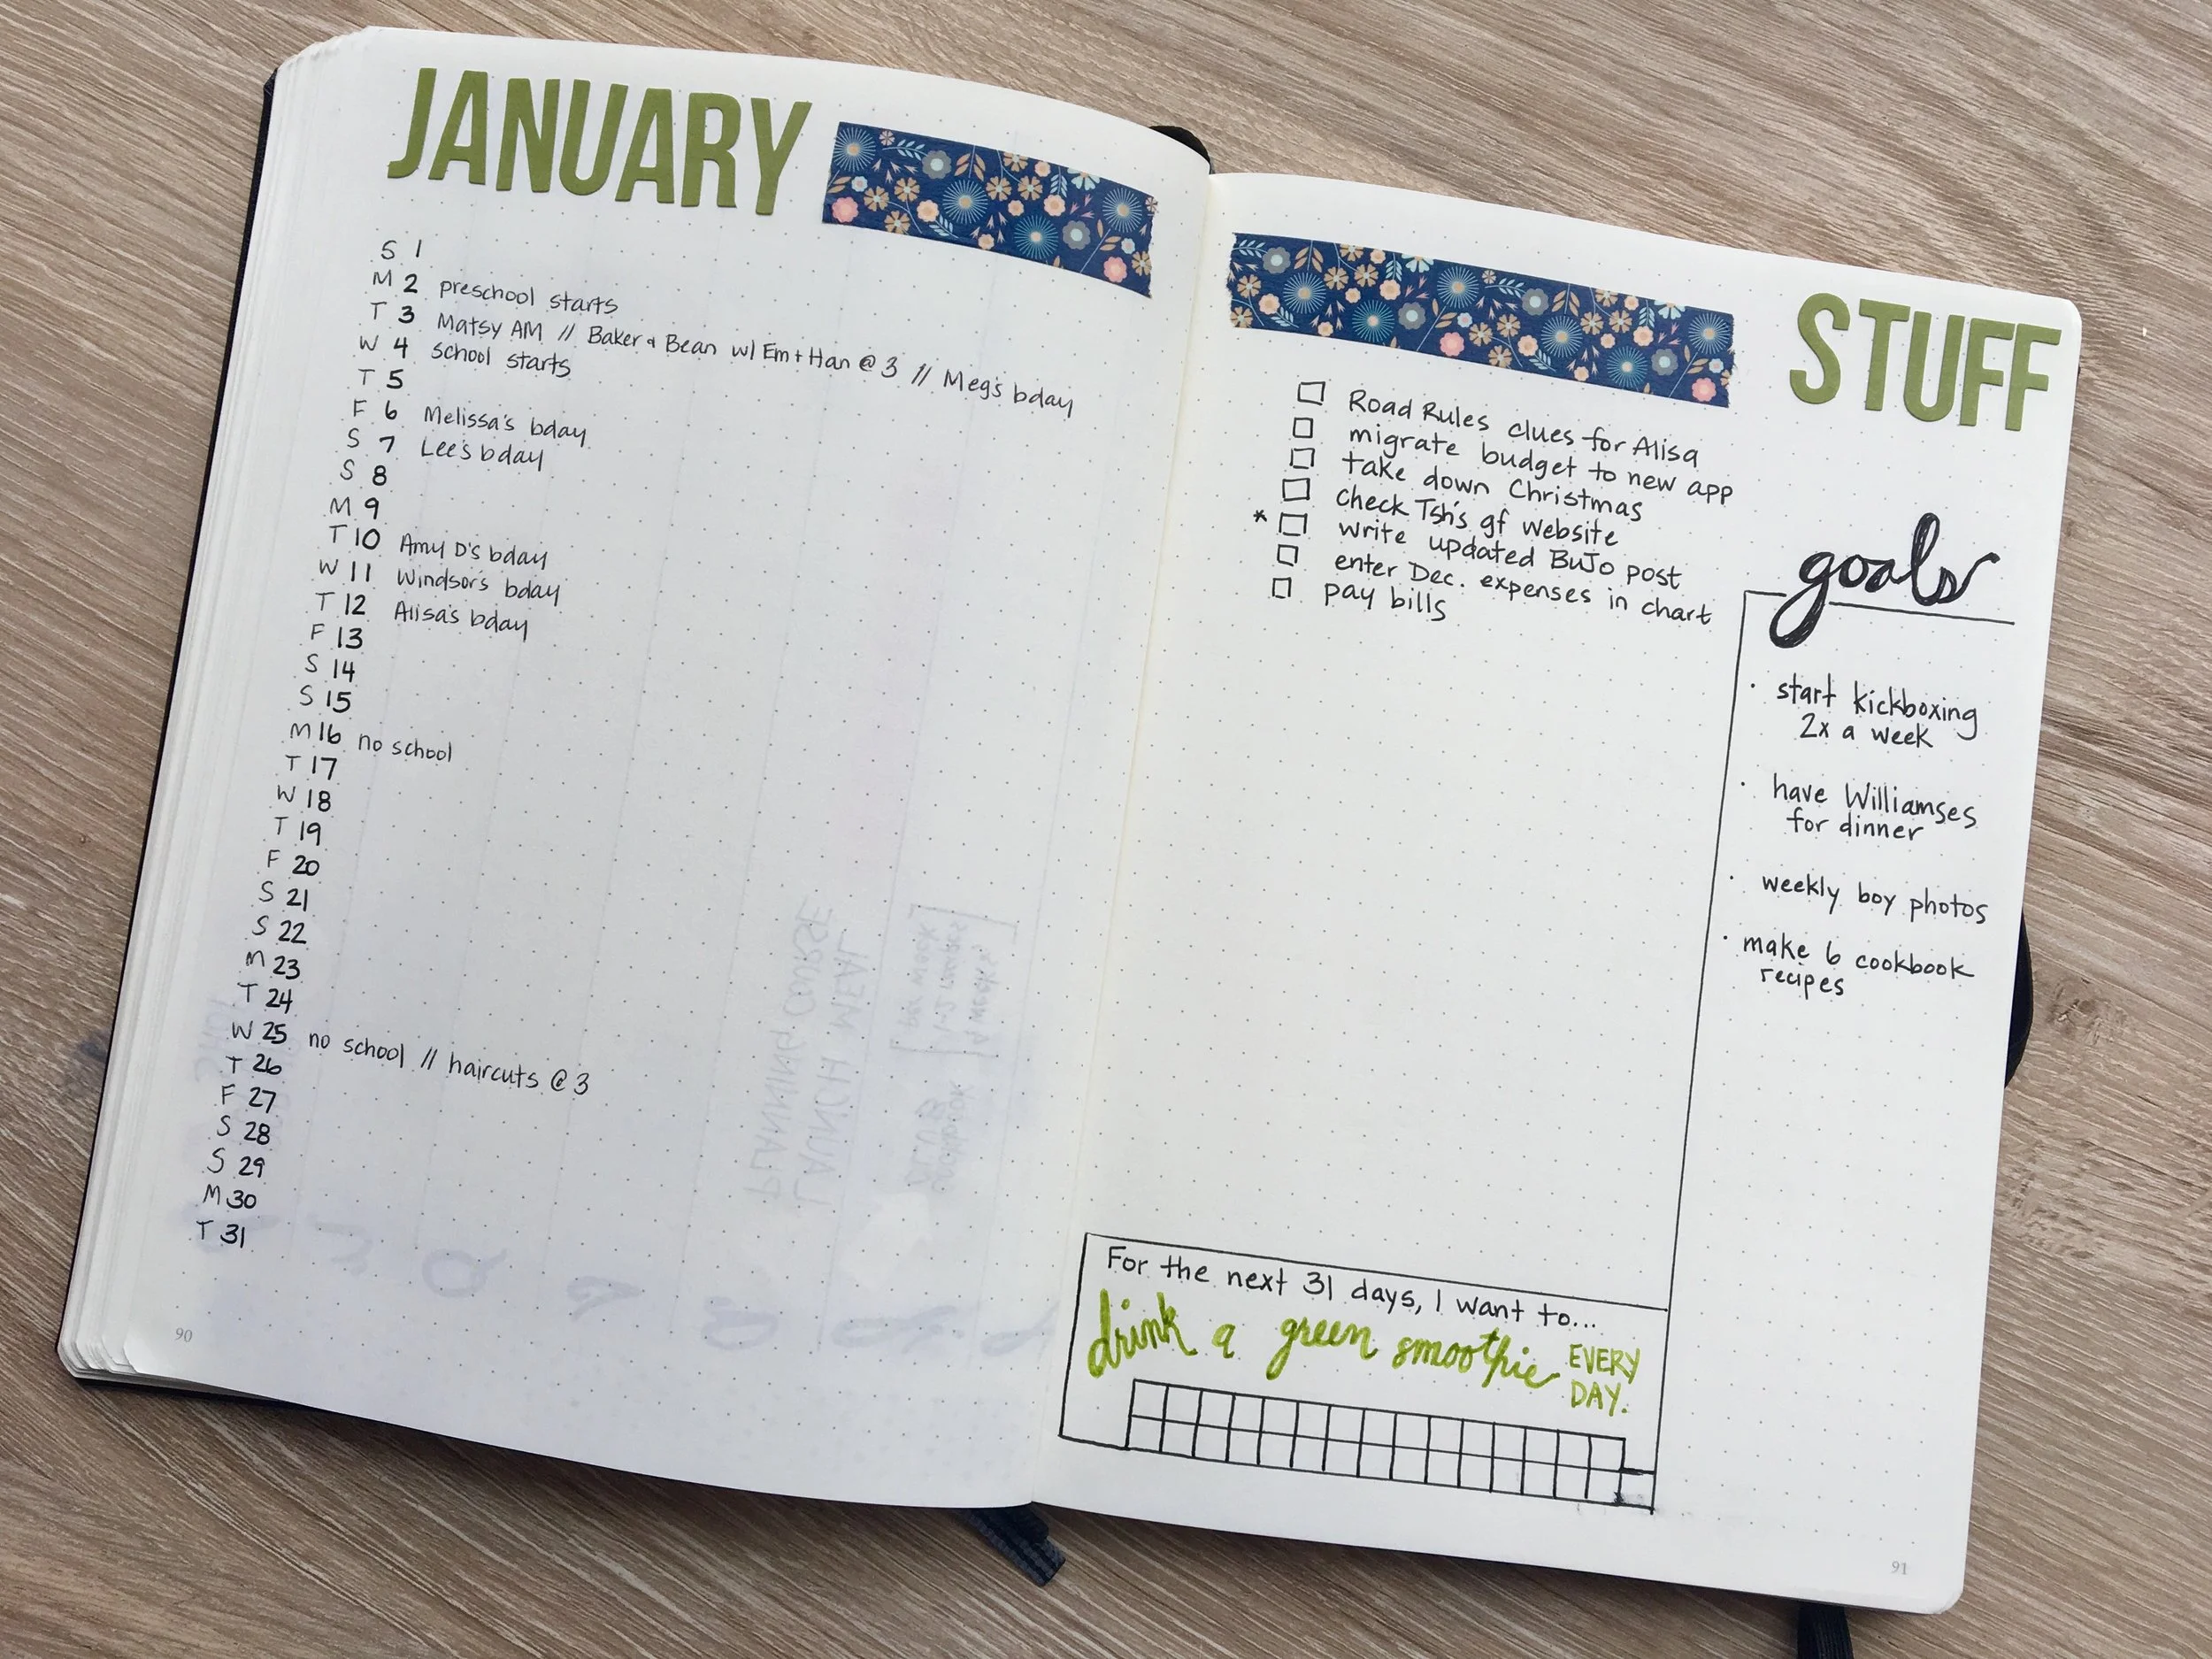 JANUARY
S 1
M 2 preschool starts
T 3 Matsy AM // Baker & Bean w/ Em + Han @ 3 // Meg's bday
W 4 school starts
T 5
F 6 Melissa's bday
S 7 Lee's bday
S 8
M 9
T 10 Amy D's bday
W 11 Windsor's bday
T 12 Alisa's bday
F 13
S 14
S 15
M 16 no school
T 17
W 18
T 19
F 20
S 21
S 22
M 23
T 24
W 25 no school // haircuts @ 3
T 26
F 27
S 28
S 29
M 30
T 31
90
STUFF
Road Rules clues for Alisa
migrate budget to new app
take down Christmas
check Tsh's gf website
* write updated BuJo post
enter Dec. expenses in chart
pay bills
goals
· start kickboxing
2x a week
· have Williamses
for dinner
· weekly boy photos
· make 6 cookbook
recipes
For the next 31 days, I want to...
drink a green smoothie EVERY
DAY.
91